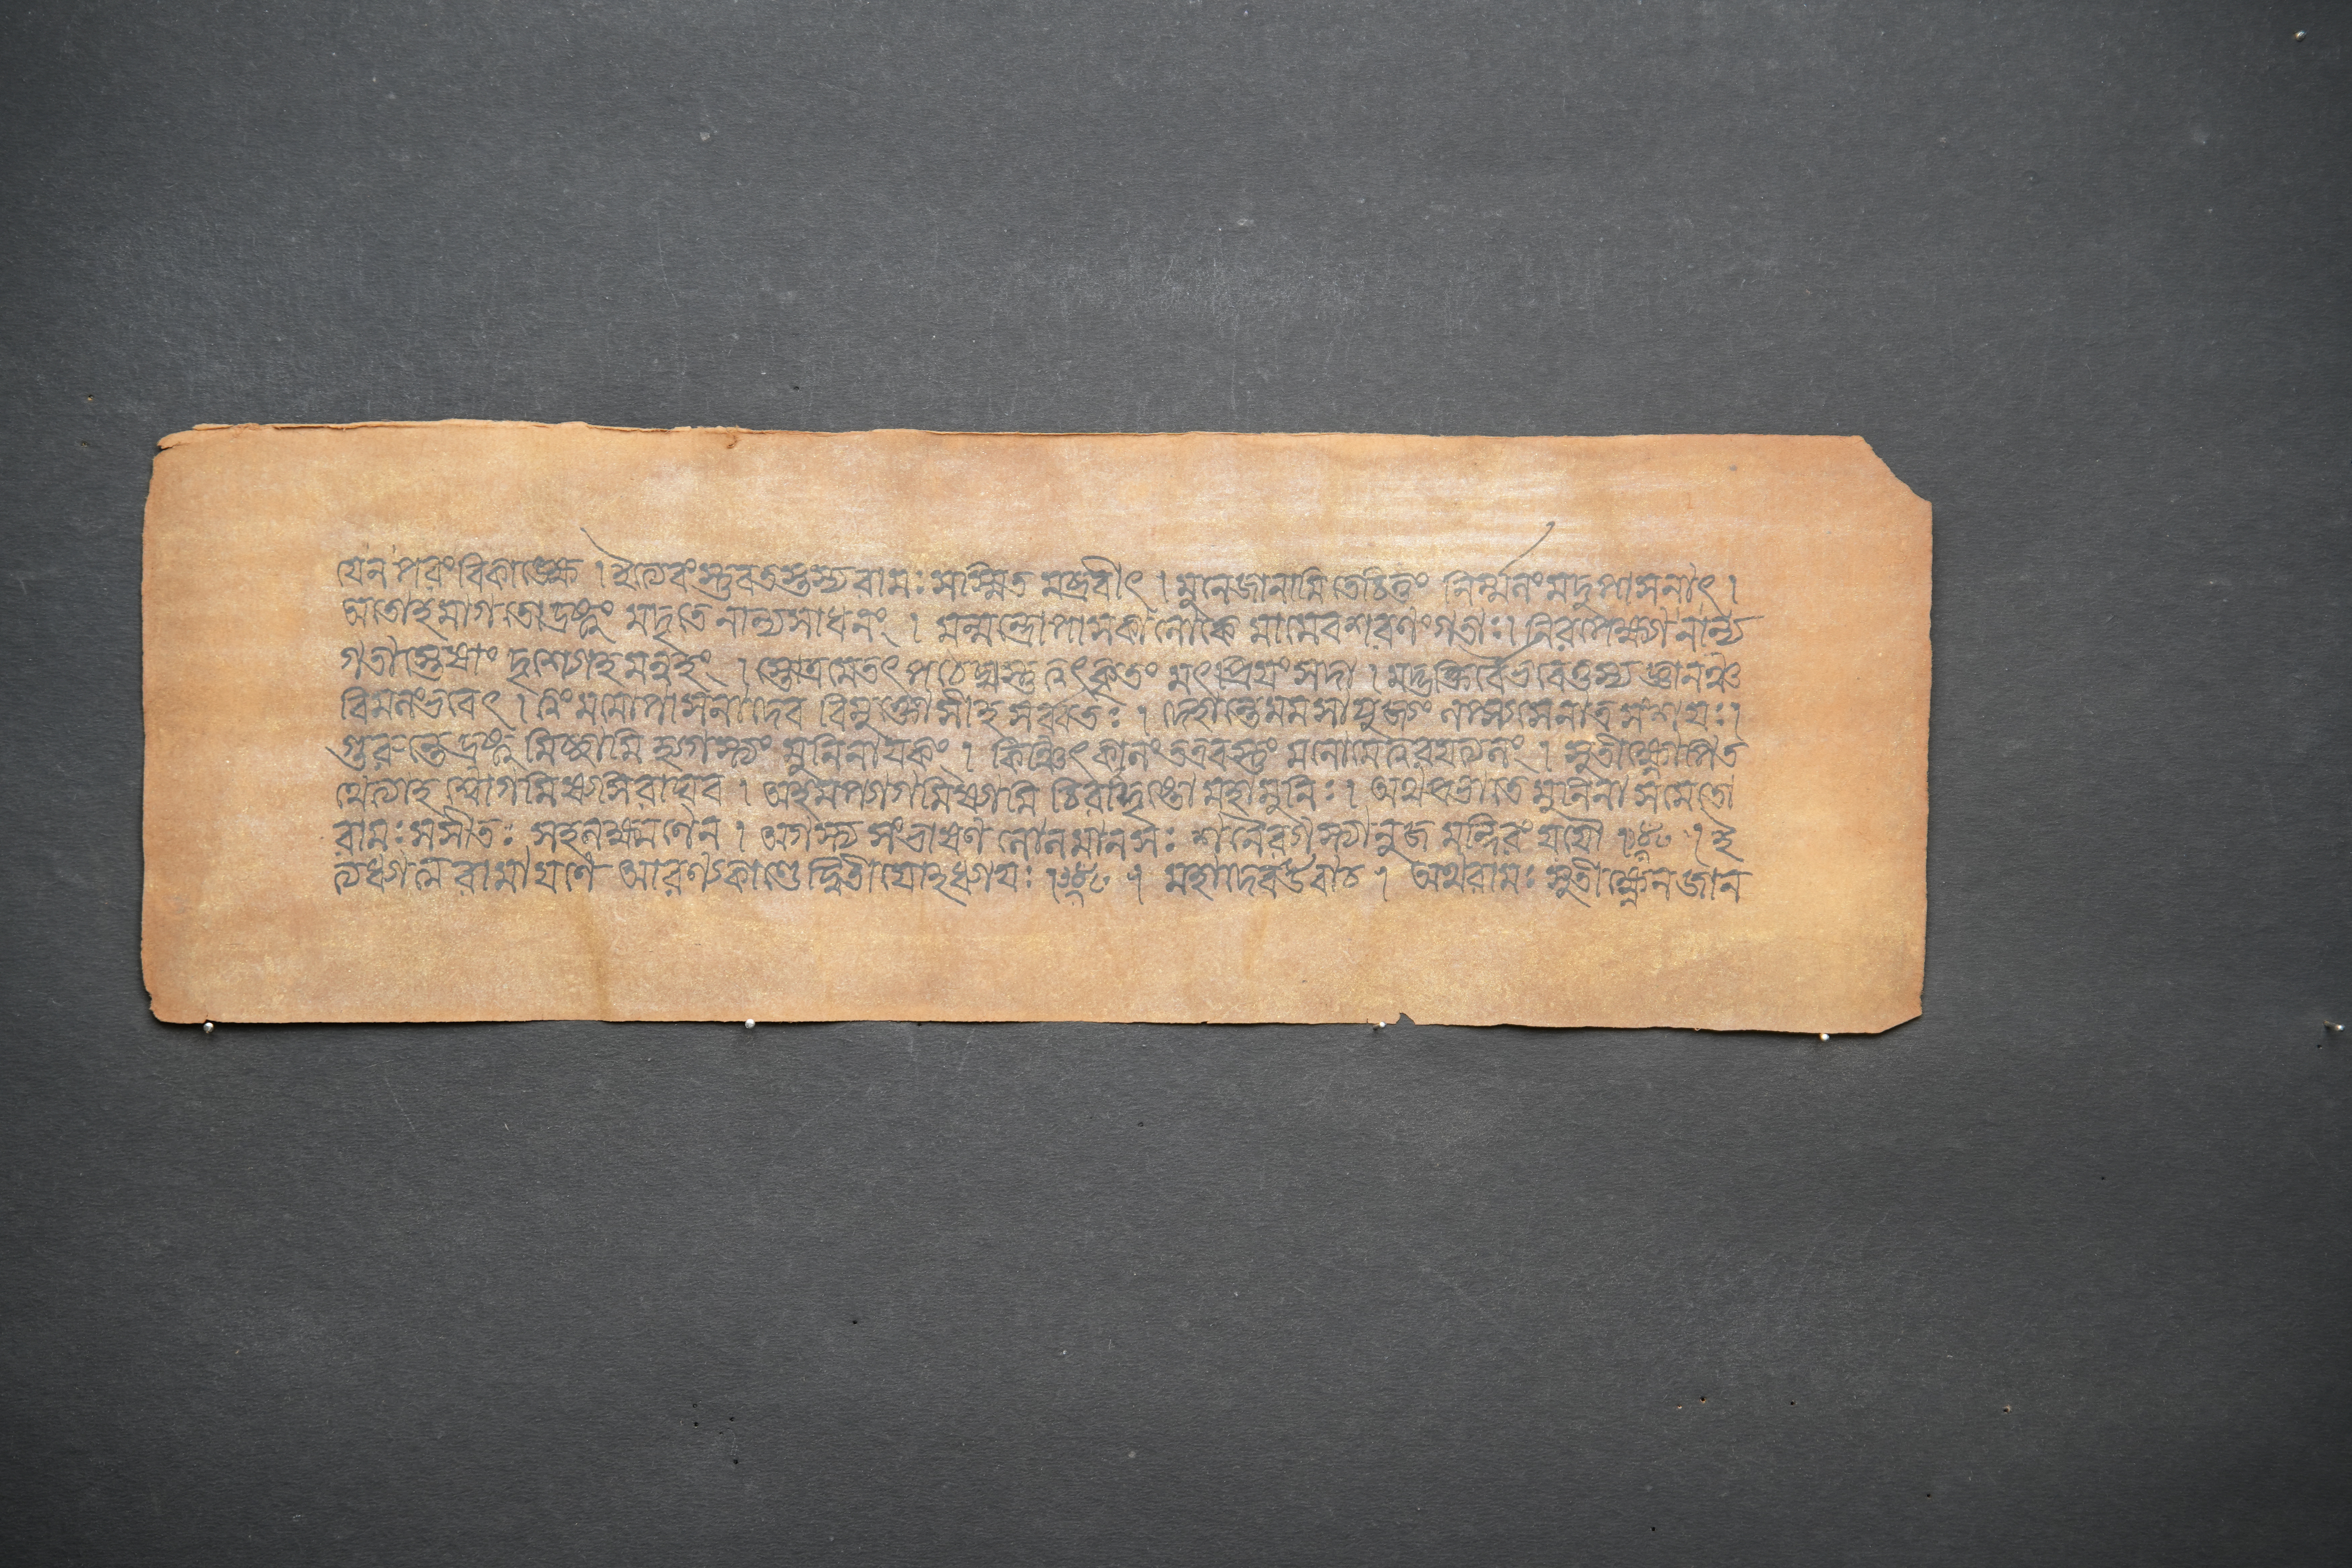 যেন পরং বিকাঙ্ক্ষে । ইত্যেবং স্তুবতস্তস্য ৰামঃ সস্মিত মব্রবীৎ । মুনেজানামি তেচিত্তং নিৰ্ম্মলং মদুপাসনাৎ ।
অতোহমাগতো দ্ৰষ্টুং মদৃতে নান্যসাধনং । মন্মন্ত্রোপাসকা লোকে মামেবশৰণং গতাঃ । নিৰপেক্ষা নান্য
গতাস্তেষাং দৃশ্যোহমন্বহং । স্তোত্রমেতৎ পঠেদ্যস্তু ত্বৎকৃতং মৎপ্রিয়ং সদা । মদ্ভক্তিৰ্ম্মেভবেত্তস্য জ্ঞানঞ্চ
বিমলংভবেৎ । ত্বং মমোপাসনাদেব বিমুক্তোসীহ সৰ্ব্বতঃ । দেহান্তেমমসাযুজ্যং লপ্স্যসেনাত্রসংশয়ঃ ।
গুৰুন্তেদ্ৰষ্টুমিচ্ছামি হ্যগস্ত্যং মুনিনায়কং । কিঞ্চিৎকালং তত্রবস্তুং মনোমেত্বৰয়ত্যলং । সুতীক্ষ্ণোপিত
থেত্যাহ শ্বোগমিষ্যসি ৰাঘব । অহমপ্যাগমিষ্যামি চিৰাদ্দৃষ্টো মহামুনিঃ । অথপ্রভাতে মুনিনা সমেতো
ৰামঃ সসীতঃ সহলক্ষ্মণেন । অগস্ত্য সংভাষণ লোলমানসঃ শনৈৰগস্ত্যানুজ মন্দিৰং যযৌ । ই
ত্যধ্যাত্ম ৰামায়ণে আৰণ্যকাণ্ডে দ্বিতীয়োহধ্যায়ঃ । মহাদেৱউবাচ । অথৰামঃ সুতীক্ষ্ণেনজান